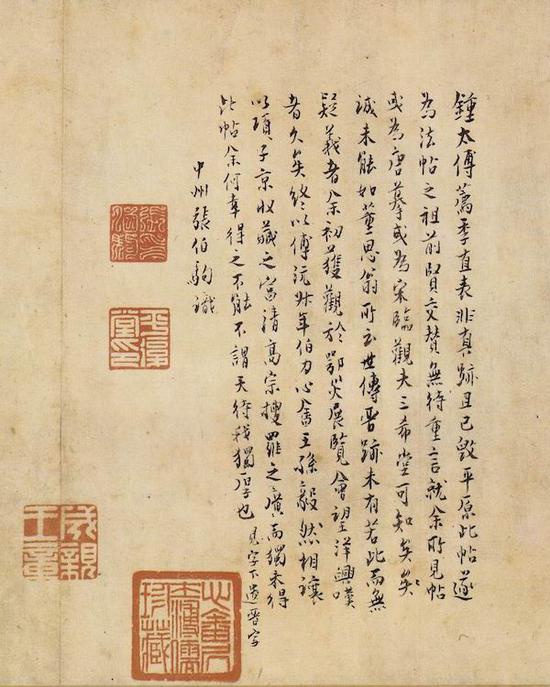 鍾太傅薦季直表非真跡且已毀平原此帖遂
為法帖之祖前賢交贊無待重言就余所見帖
或為唐摹或為宋臨觀夫三希堂可知矣矣
誠未能如董思翁所云世傳晉跡未有若此而無
疑義者余初獲觀於鄂災展覽會望洋興嘆
者久矣終以傅沅叔年伯力心畬王孫毅然相讓
以項子京收藏之富清高宗搜羅之廣而獨未得
此帖余何幸得之不能不謂天待我獨厚也 見字下遺晉字
中州張伯駒識
平復堂印
成親王章
珍藏